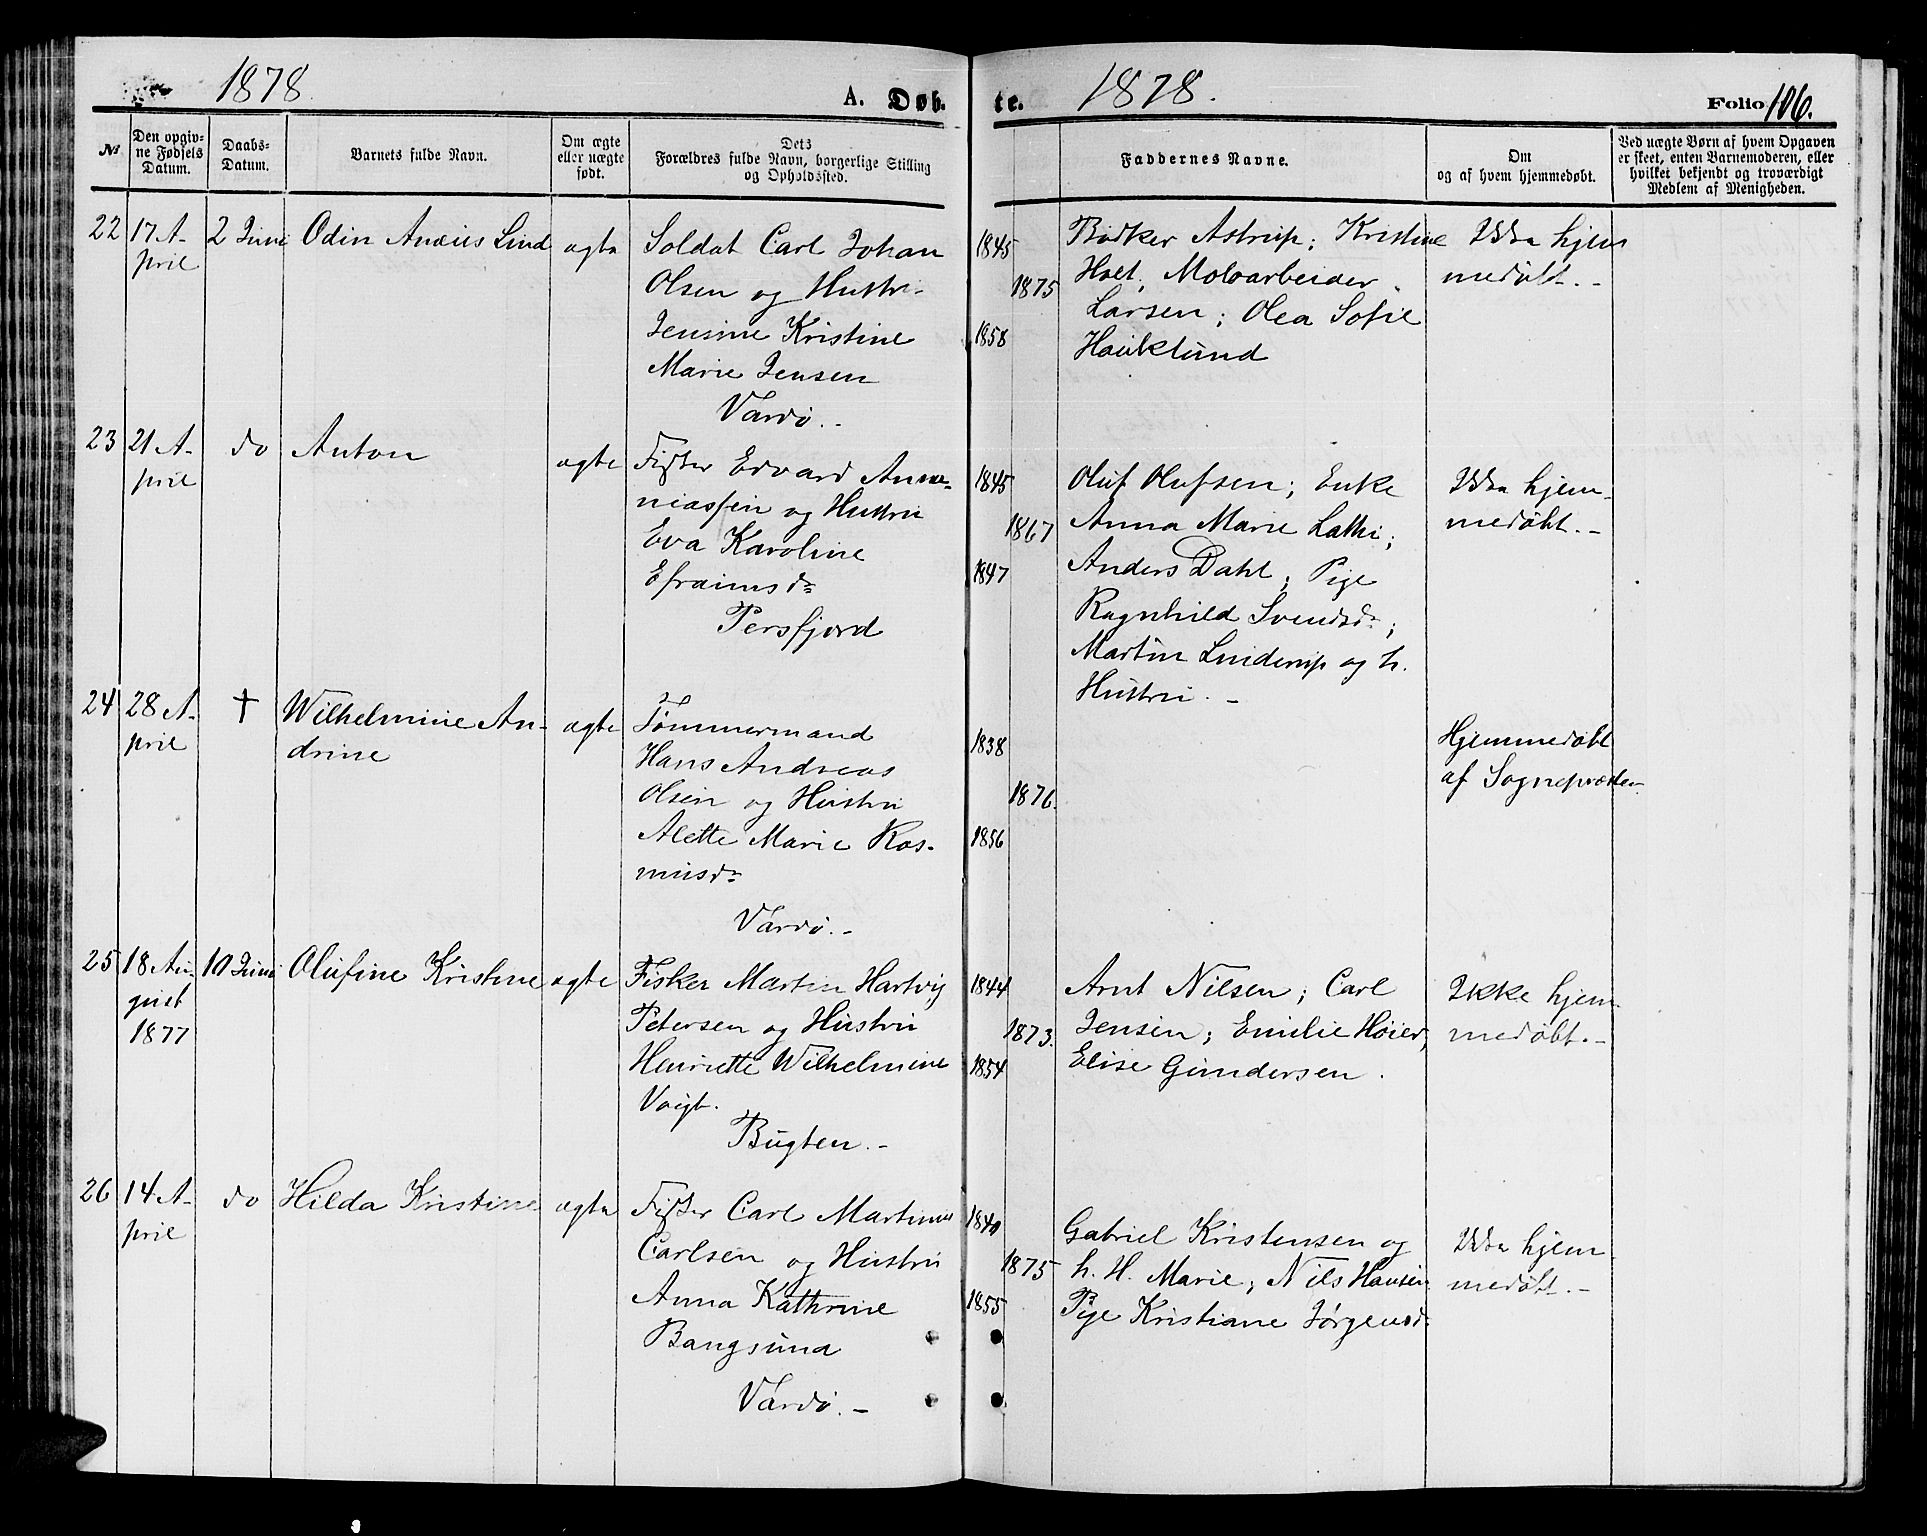 1878
A. Døb-
№
Den opgiv-
ne Fødsels
Datum.
Daabs-
Datum.
Barnets fulde Navn.
Om ægte
eller uægte
født.
Dets
Forældres fulde Navn, borgerlige Stilling
og Opholdssted.
22
17 A-
pril
2 Juni
Odin Anæus Lind
ægte
Soldat Carl Johan
Olsen og Hustr.
Jensine Kristine
Marie Jensen
Vardö. -
23
21 A-
pril
do
Anton
ægte
Fisker Edvard Anna-
niassen og Hustru
Eva Karoline
Efraimsdr
Persfjord
24
28 A-
pril
†
Wilhelmine An-
drine
ægte
Tömmermand
Hans Andreas
Olsen og Hustru
Alette Marie Ras-
musdr
Vardö. -
25
18 Au-
gust
1877
10 Juni
Olufine Kristine
ægte
Fisker Martin Hartvig
Petersen og Hustru
Henriette Wilhelmine
Voigt.
Bugten. -
26
14 A-
pril
do
Hilda Kristine
ægte
Fisker Carl Martinus
Carlsen og Hustru
Anna Kathrine
Bangsund
Vardö. -
te.
1878.
Folio 106.
Faddernes Navne.
Om
og af hvem hjemmedøbt.
Ved uægte Børn af hvem Opgaven
er skeet, enten Barnemoderen, eller
hvilket bekjendt og troværdigt
Medlem af Menigheden.
1845
1875
1858
Bödker Astrup; Kristine
Holt, Moloarbeider
Larsen; Olea Sofie
Hauklund
Ikke hjem
medöbt. -
1845
1867
1847
Oluf Olufsen; Enke
Anna Marie Lathi;
Anders Dahl; Pige
Ragnhild Svendsdr;
Martin Linderup og h.
Hustru. -
Ikke hjem-
medöbt. -
1838
1876.
1856
Hjemmedöbt
af Sognepræsten
1844
1873.
1854
Arnt Nilsen; Carl
Jensen; Emilie Höier,
Elise Gundersen.
Ikke hjem-
medöbt. -
1840
1875
1855
Gabriel Kristensen og
h. H. Marie; Nils Hansen
Pige Kristiane Jörgensd.
Ikke hjem-
medöbt. -